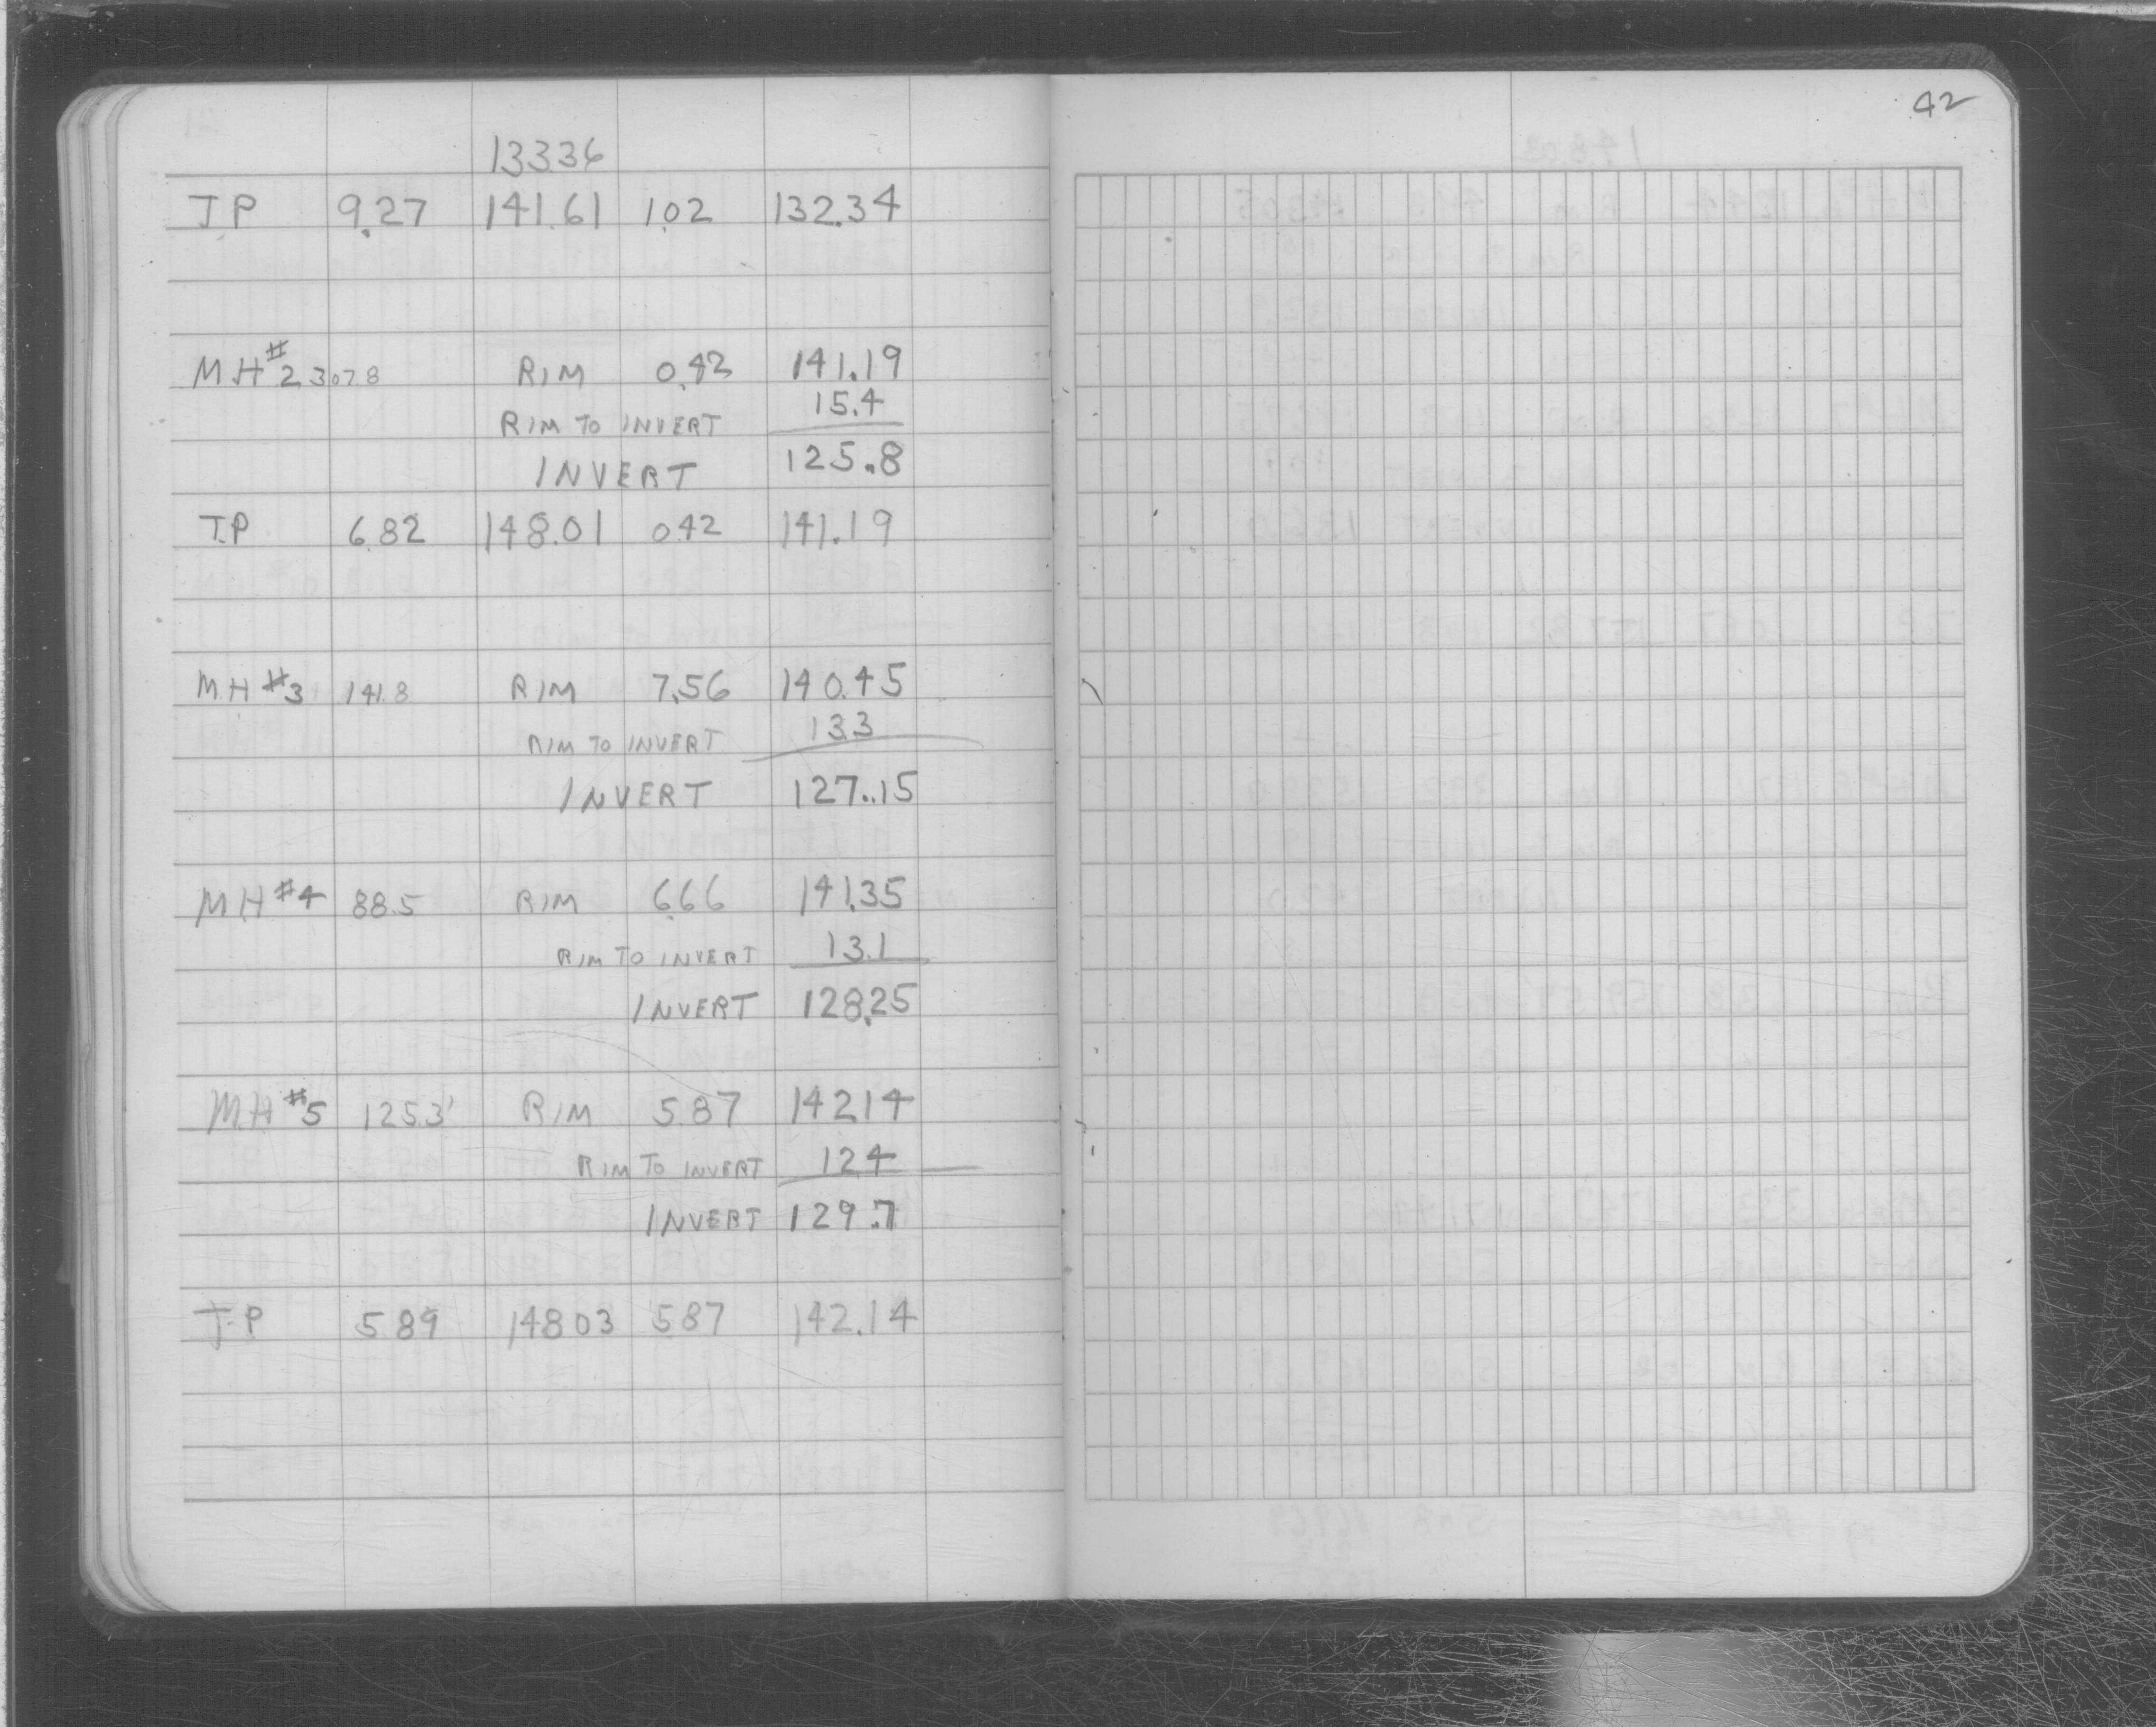 42
133.36
T.P 9.27 141.61 1.02 132.34
M.H #2 307.8 RIM 0.42 141.19
RIM TO INVERT 15.4
INVERT 125.8
T.P 6.82 148.01 0.42 141.19
M.H #3 141.8 RIM 7.56 140.45
RIM TO INVERT 13.3
INVERT 127.15
M.H #4 88.5 RIM 6.66 141.35
RIM TO INVERT 13.1
INVERT 128.25
M.H #5 125.3' RIM 5.87 142.14
RIM TO INVERT 12.4
INVERT 129.7
T.P 5.89 148.03 5.87 142.14